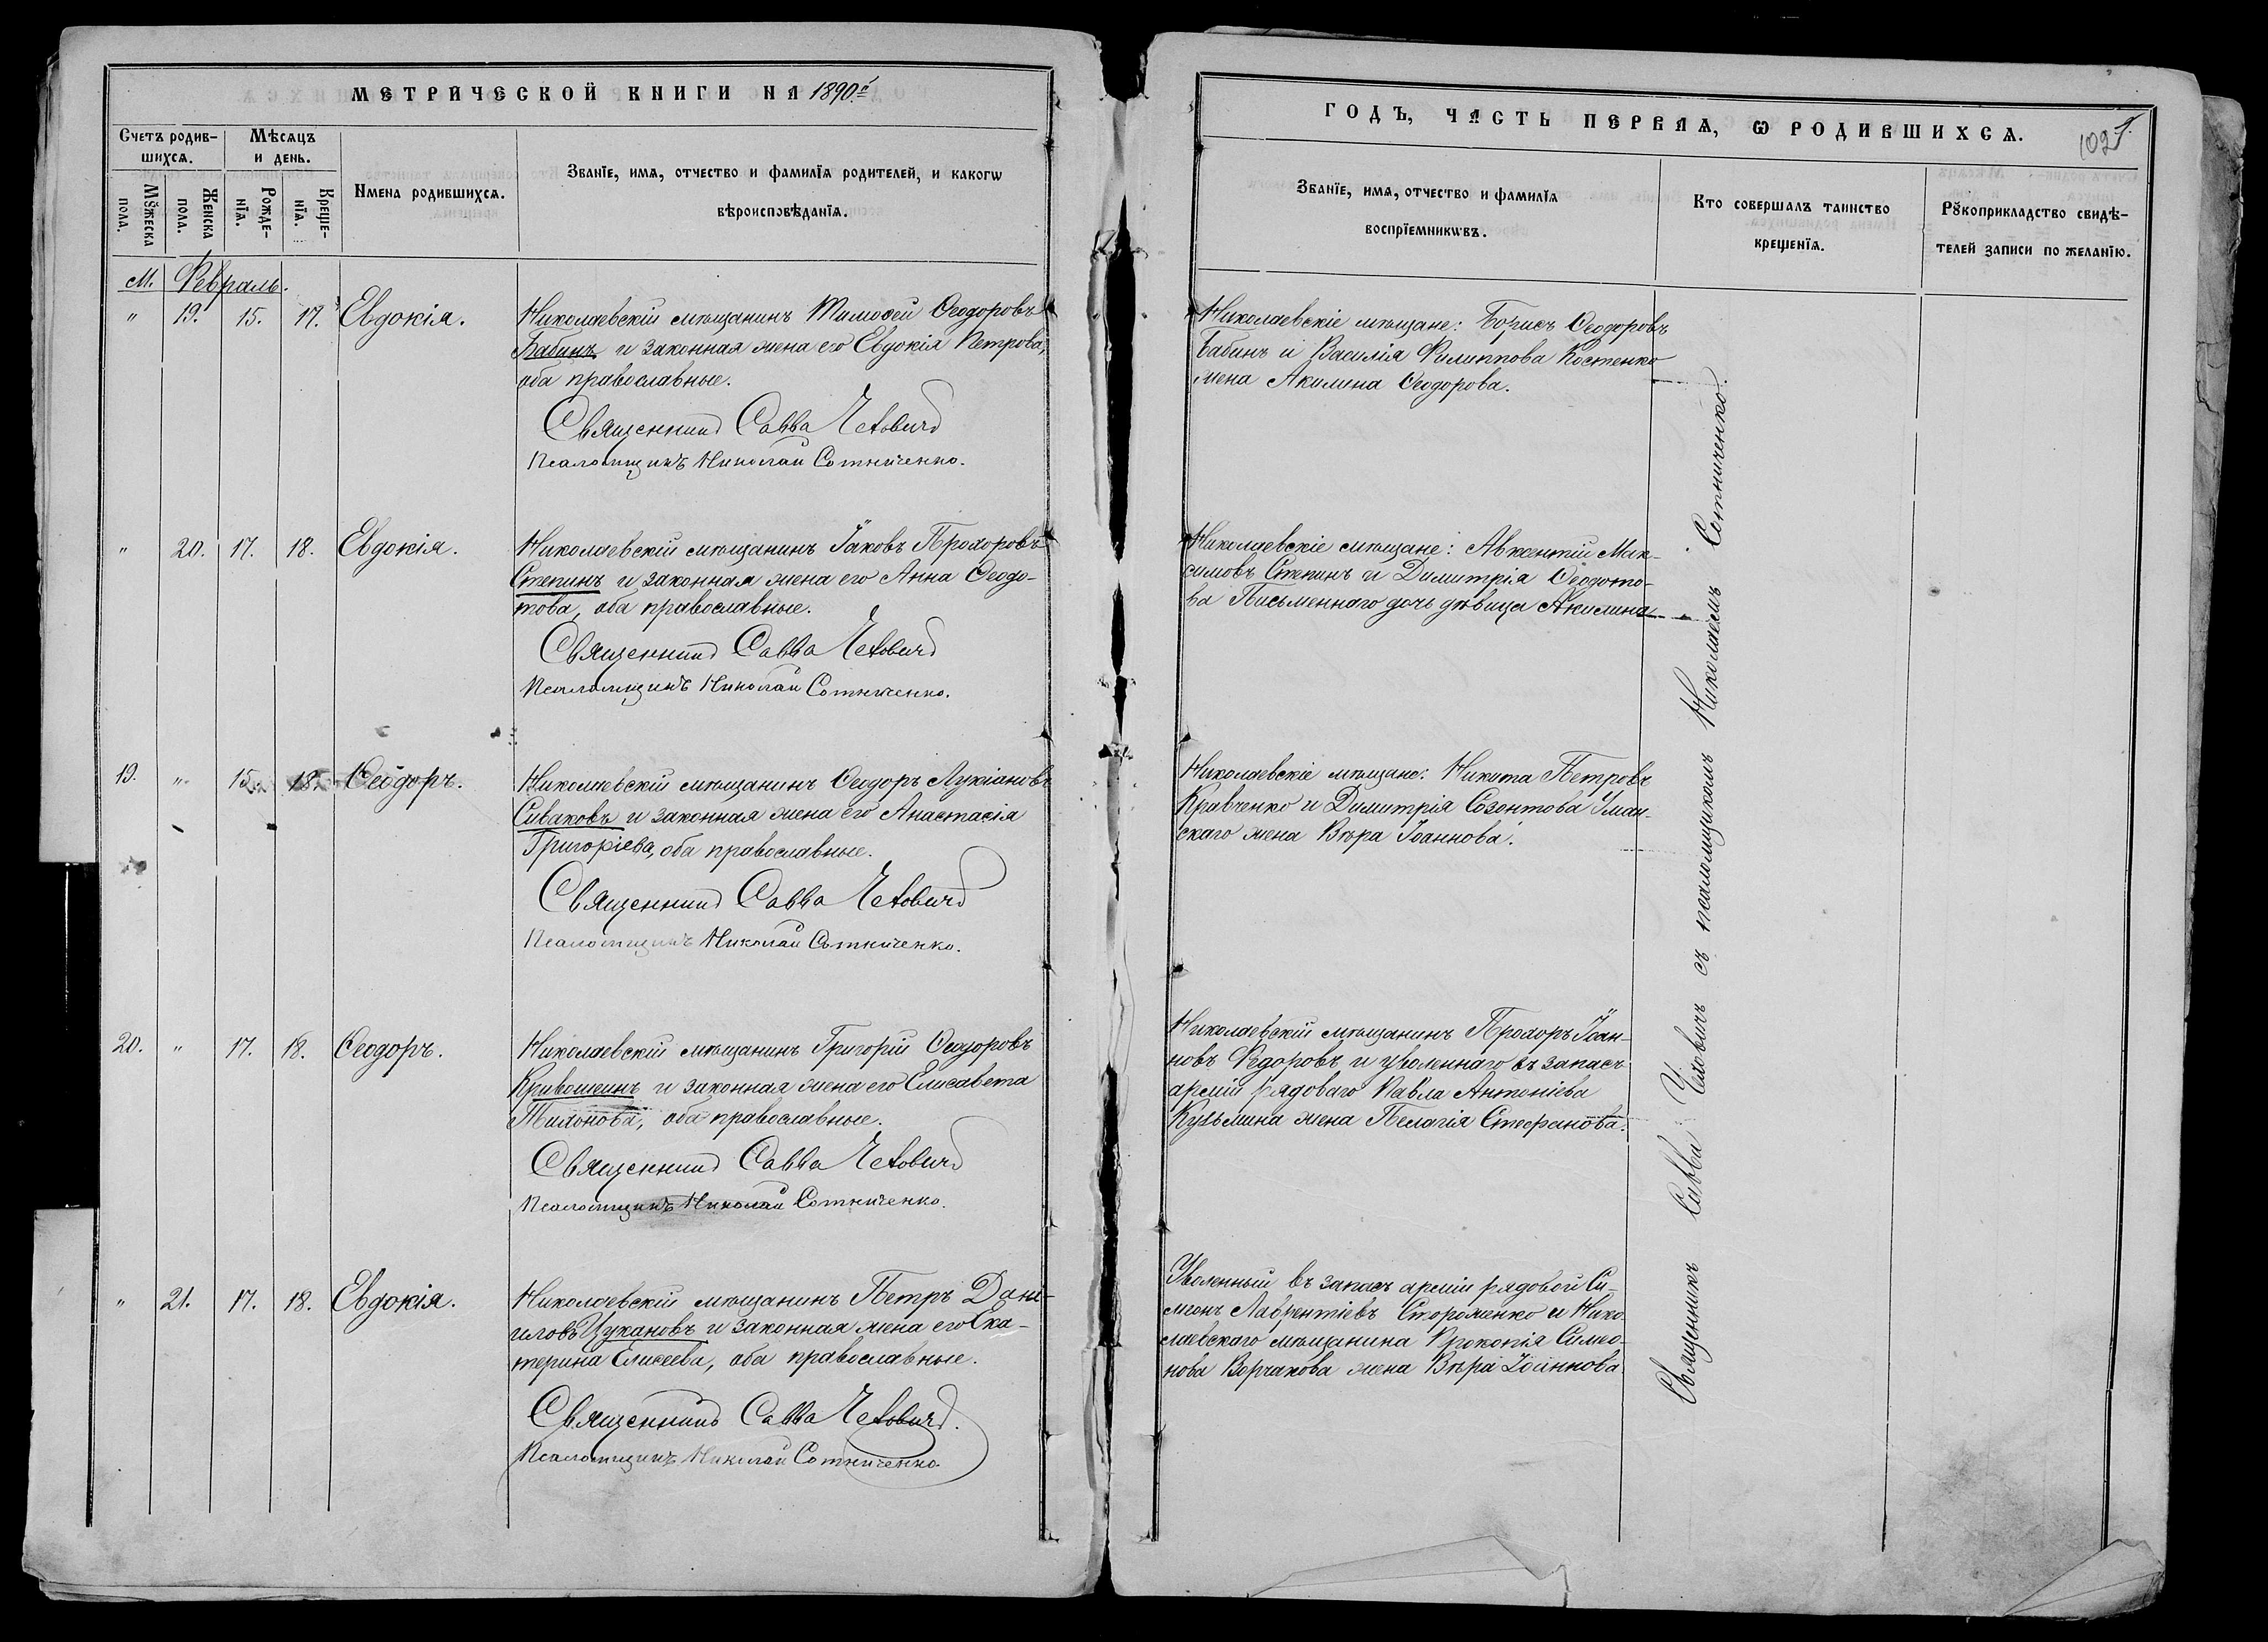 МЕТРИЧЕСКОЙ КНИГИ НА 1890й
Счетъ родив-
шихся.
Мѣсяцъ
и день.
Мꙋжеска
пола.
Женска
пола.
Рожде-
нїя.
Креще-
нїя.
Имена родившихся.
Званїе, имя, отчество и фамилїя родителей, и какогѡ
вѣроисповѣданїя.
М. Февраль.
" 19. 15. 17. Евдокія.
Николаевскій мѣщанинъ Тимоѳей Ѳеодоровъ
Бабинъ и законная жена его Евдокія Петрова,
оба православные.
Священникъ Савва
Псаломщикъ Николай Сотниченко.
" 20. 17. 18. Евдокія.
Николаевскій мѣщанинъ Іаковъ Прохоровъ
Степинъ и законная жена его Анна Ѳеодо-
това, оба православные.
Священникъ Савва
Псаломщикъ Николай Сотниченко.
19. " 15. 18. Ѳеодоръ.
Николаевскій мѣщанинъ Ѳеодоръ Лукіановъ
Сиваковъ и законная жена его Анастасія
Григоріева, оба православные.
Священникъ Савва
Псаломщикъ Николай Сотниченко.
20. " 17. 18. Ѳеодоръ.
Николаевскій мѣщанинъ Григорій Ѳеодоровъ
Кривошеинъ и законная жена его Елисавета
оба православные.
Священникъ Савва
Псаломщикъ Николай Сотниченко.
" 21. 17. 18. Евдокія.
Николаевскій мѣщанинъ Петръ Дані-
иловъ Цукановъ и законная жена его Ека-
терина Елисеева, оба православные.
Священникъ Савва
Псаломщикъ Николай Сотниченко.
ГОДЪ, ЧАСТЬ ПЕРВАЯ, Ѡ РОДИВШИХСЯ.
Званїе, имя, отчество и фамилїя
воспрїемникѡвъ.
Кто совершалъ таинство
крещенїя.
Рꙋкоприкладство свидѣ-
телей записи по желанїю.
Николаевскіе мѣщане: Борисъ Ѳеодоровъ
Бабинъ и Василія Филиппова Костенко
жена Акилина Ѳеодорова.
Николаевскіе мѣщане: Авксентій Мак-
симовъ Степинъ и Димитрія Ѳеодото-
ва Письменнаго дочь дѣвица Акилина
Николаевскіе мѣщане: Никита Петровъ
Кравченко и Димитрія Созонтова Уман-
скаго жена Вѣра Іоаннова.
Николаевскій мѣщанинъ Прохоръ Іоан-
новъ Ѳедоровъ и уволеннаго въ запасъ
арміи рядоваго Павла Антоніева
Кузьмина жена Пелагія Стефанова.
Уволенный въ запасъ арміи рядовой Си-
меонъ Лаврентіевъ Стороженко и Нико-
лаевскаго мѣщанина Прокопія Симео-
нова Ворчакова жена Вѣра Іоаннова.
Священникъ Савва съ псаломщикомъ Николаемъ Сотниченко.